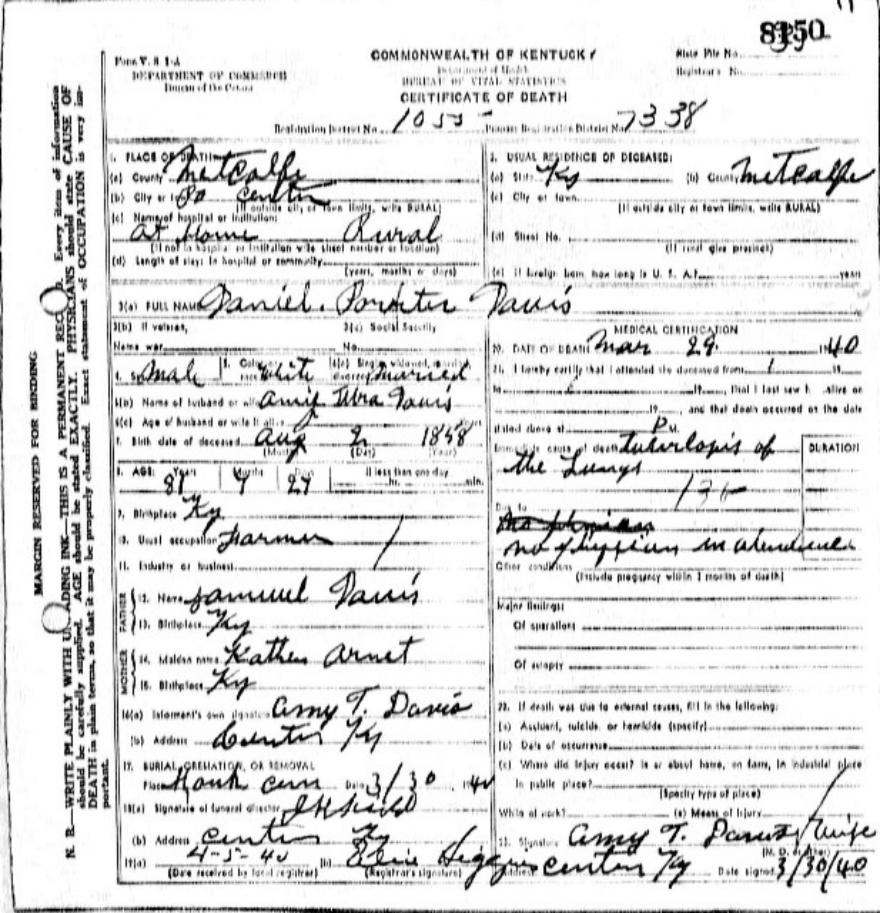 8150
Form V. S. 1-A
DEPARTMENT OF COMMERCE
Bureau of the Census
COMMONWEALTH OF KENTUCKY
Department of Health
BUREAU OF VITAL STATISTICS
CERTIFICATE OF DEATH
State File No.
Registrar's No.
Registration District No. 1055 Primary Registration District No. 7338
MARGIN RESERVED FOR BINDING
N. B.—WRITE PLAINLY WITH UNFADING INK—THIS IS A PERMANENT RECORD. Every item of information
should be carefully supplied. AGE should be stated EXACTLY. PHYSICIANS should state CAUSE OF
DEATH in plain terms, so that it may be properly classified. Exact statement of OCCUPATION is very im-
portant.
1. PLACE OF DEATH:
(a) County Metcalfe
(b) City or center
(If outside city or town limits, write RURAL)
(c) Name of hospital or institution:
at Home Rural
(If not in hospital or institution write street number or location)
(d) Length of stay: In hospital or community
(years, months or days)
2. USUAL RESIDENCE OF DECEASED:
(a) State Ky (b) County Metcalfe
(c) City or town
(If outside city or town limits, write RURAL)
(d) Street No.
(If rural give precinct)
(e) If foreign born, how long in U. S. A.? years
3(a) FULL NAME Daniel Davis
3(b) If veteran, 3(c) Social Security
Name war No.
4. Sex Male 5. Color or race White 6(a) Single, widowed, married, divorced married
6(b) Name of husband or wife Davis
6(c) Age of husband or wife if alive years
7. Birth date of deceased Aug 2 1858
(Month) (Day) (Year)
8. AGE: Years Months Days If less than one day
81 7 27 hr. min.
9. Birthplace Ky
10. Usual occupation Farmer
11. Industry or business
FATHER
12. Name Samuel Davis
13. Birthplace Ky
MOTHER
14. Maiden name Kathen Arnet
15. Birthplace Ky
16(a) Informant's own signature Amy T. Davis
(b) Address Center Ky
17. BURIAL, CREMATION, OR REMOVAL
Place cem Date 3/30 1940
18(a) Signature of funeral director
(b) Address Center Ky
19(a) 4-5-40 (b)
(Date received by local registrar) (Registrar's signature)
MEDICAL CERTIFICATION
20. DATE OF DEATH Mar 29 1940
21. I hereby certify that I attended the deceased from 19
to 19, that I last saw h alive on
19, and that death occurred on the date
stated above at P M.
Immediate cause of death tuberlopis of
the Lungs
DURATION
Due to
no in
Other conditions
(Include pregnancy within 3 months of death)
Major findings:
Of operations
Of autopsy
22. If death was due to external causes, fill in the following:
(a) Accident, suicide, or homicide (specify)
(b) Date of occurrence
(c) Where did injury occur? In or about home, on farm, in industrial place
in public place?
(Specify type of place)
While at work? (e) Means of Injury
23. Signature Amy T. Davis Wife
(M. D. or other)
Address Center Ky Date signed 3/30/40